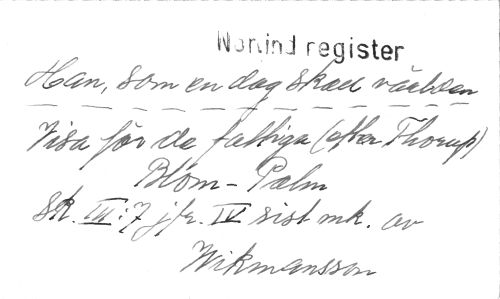 Nomind register
Han, som en dag skall världen
Visa för de fattiga (efter Thorup)
Blom - Palm
sk. III:7 jfr. IV sist mk. av
Wikmansson